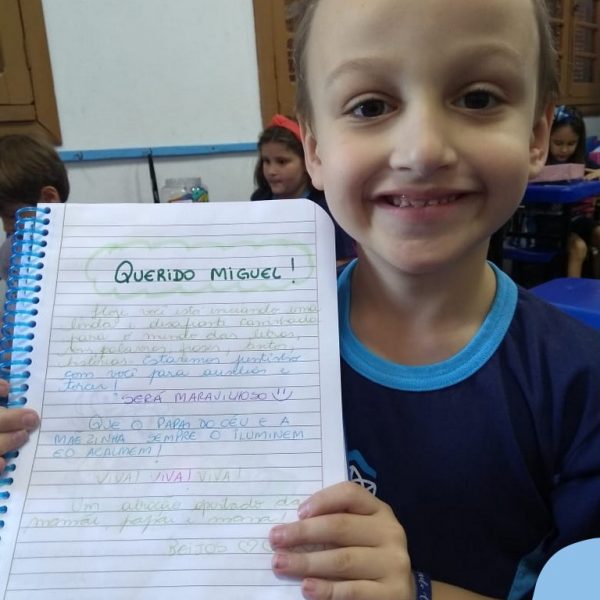 QUERIDO MIGUEL!
Hoje você está iniciando uma
linda e desafiante caminhada
para o mundo das letras,
Estaremos juntinho
com você para auxiliar e
torcer!
SERÁ MARAVILHOSO
QUE O PAPAI DO CÉU E A
MÃEZINHA SEMPRE O ILUMINEM
E O ACALMEM!
VIVA! VIVA! VIVA!
Um abração apertado da
mamãe, papai e mana!
BEIJOS